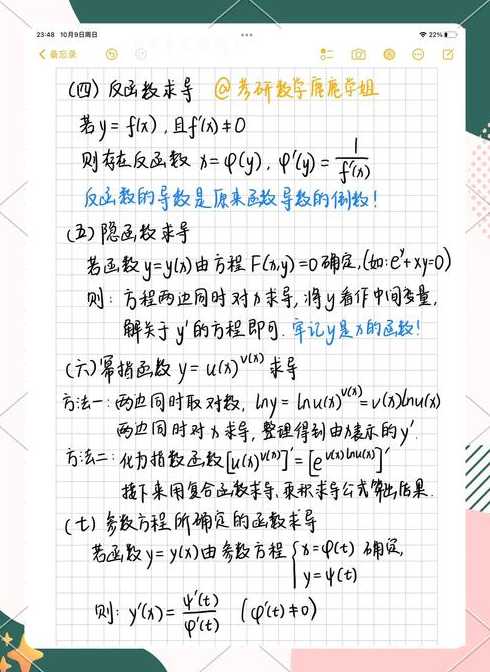 23:48 10月9日周日
22%
备忘录
(四) 反函数求导 @考研数学鹿鹿学姐
若y=f(x),且f'(x)≠0
则存在反函数 x=φ(y), φ'(y)=1/f'(x)
反函数的导数是原来函数导数的倒数!
(五) 隐函数求导
若函数y=y(x)由方程F(x,y)=0确定,(如:e^y+xy=0)
则: 方程两边同时对x求导,将y看作中间变量,
解关于y'的方程即可. 牢记y是x的函数!
(六)幂指函数 y=u(x)^v(x) 求导
方法一: 两边同时取对数, lny=lnu(x)^v(x)=v(x)lnu(x)
两边同时对x求导, 整理得到由x表示的y'.
方法二: 化为指数函数[u(x)^v(x)]'=[e^v(x)lnu(x)]'
接下来用复合函数求导、乘积求导公式算出结果.
(七) 参数方程所确定的函数求导
若函数y=y(x)由参数方程{x=φ(t) 确定,
y=ψ(t)
则: y'(x)=ψ'(t)/φ'(t) (φ'(t)≠0)